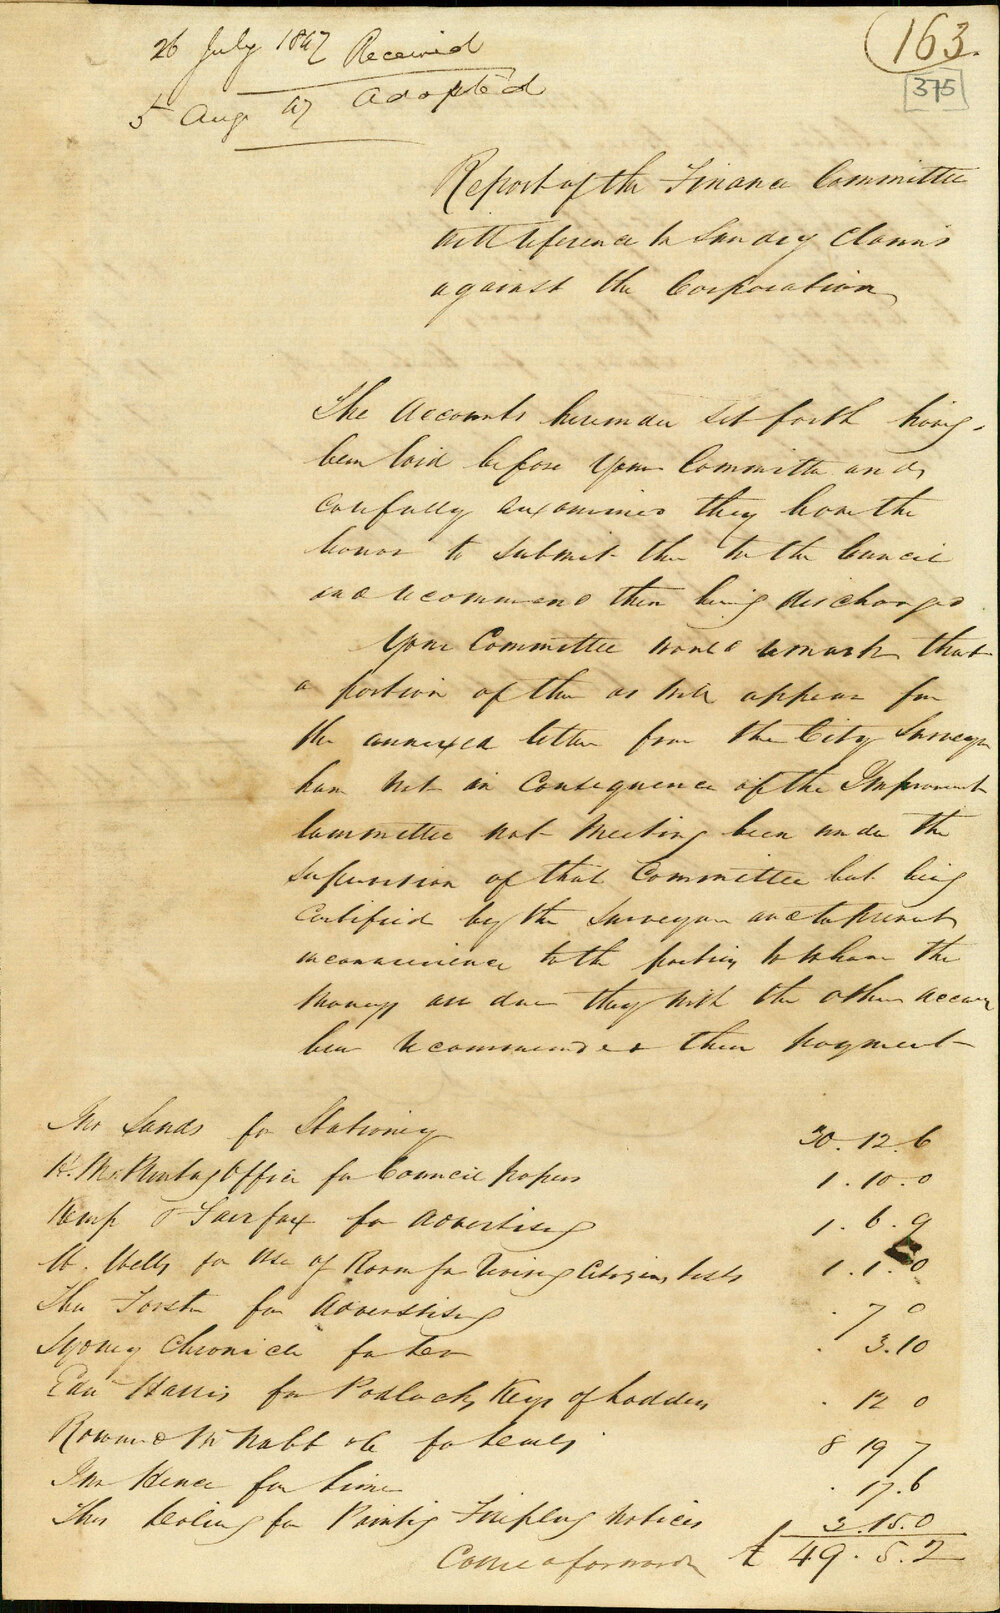 26 July 1847 Received
5 Aug 47 Adopted
163.
375
Report of the Finance Committee
with reference to Sundry Claims
against the Corporation
The Accounts hereunder set forth having
been laid before your Committee and
carefully examined they have the
honor to submit them to the Council
and recommend them being discharged
Your Committee would remark that
a portion of them as will appear from
the annexed letter from the City Surveyor
have not in Consequence of the Improvement
Committee not Meeting been under the
supervision of that Committee but being
Certified by the Surveyor and to prevent
inconvenience to the parties to whom the
Moneys are due they with the other accounts
been recommended their payment
Jno Sands for Stationery 30. 12. 6
for Council papers 1. 10. 0
Kemp & Fairfax for Advertising 1. 6. 9
W. Wells for Use of Room for Citizens Lists 1. 1. 0
for Advertising . 7 0
Sydney Chronicle for 3. 10
Edw Harris for Padlocks Keys of Ladders . 12 0
for 8 19 7
Jno for Lime . 17. 6
Thos for Painting Fireplug Notices 3. 15. 0
Carried forward £ 49. 5. 2